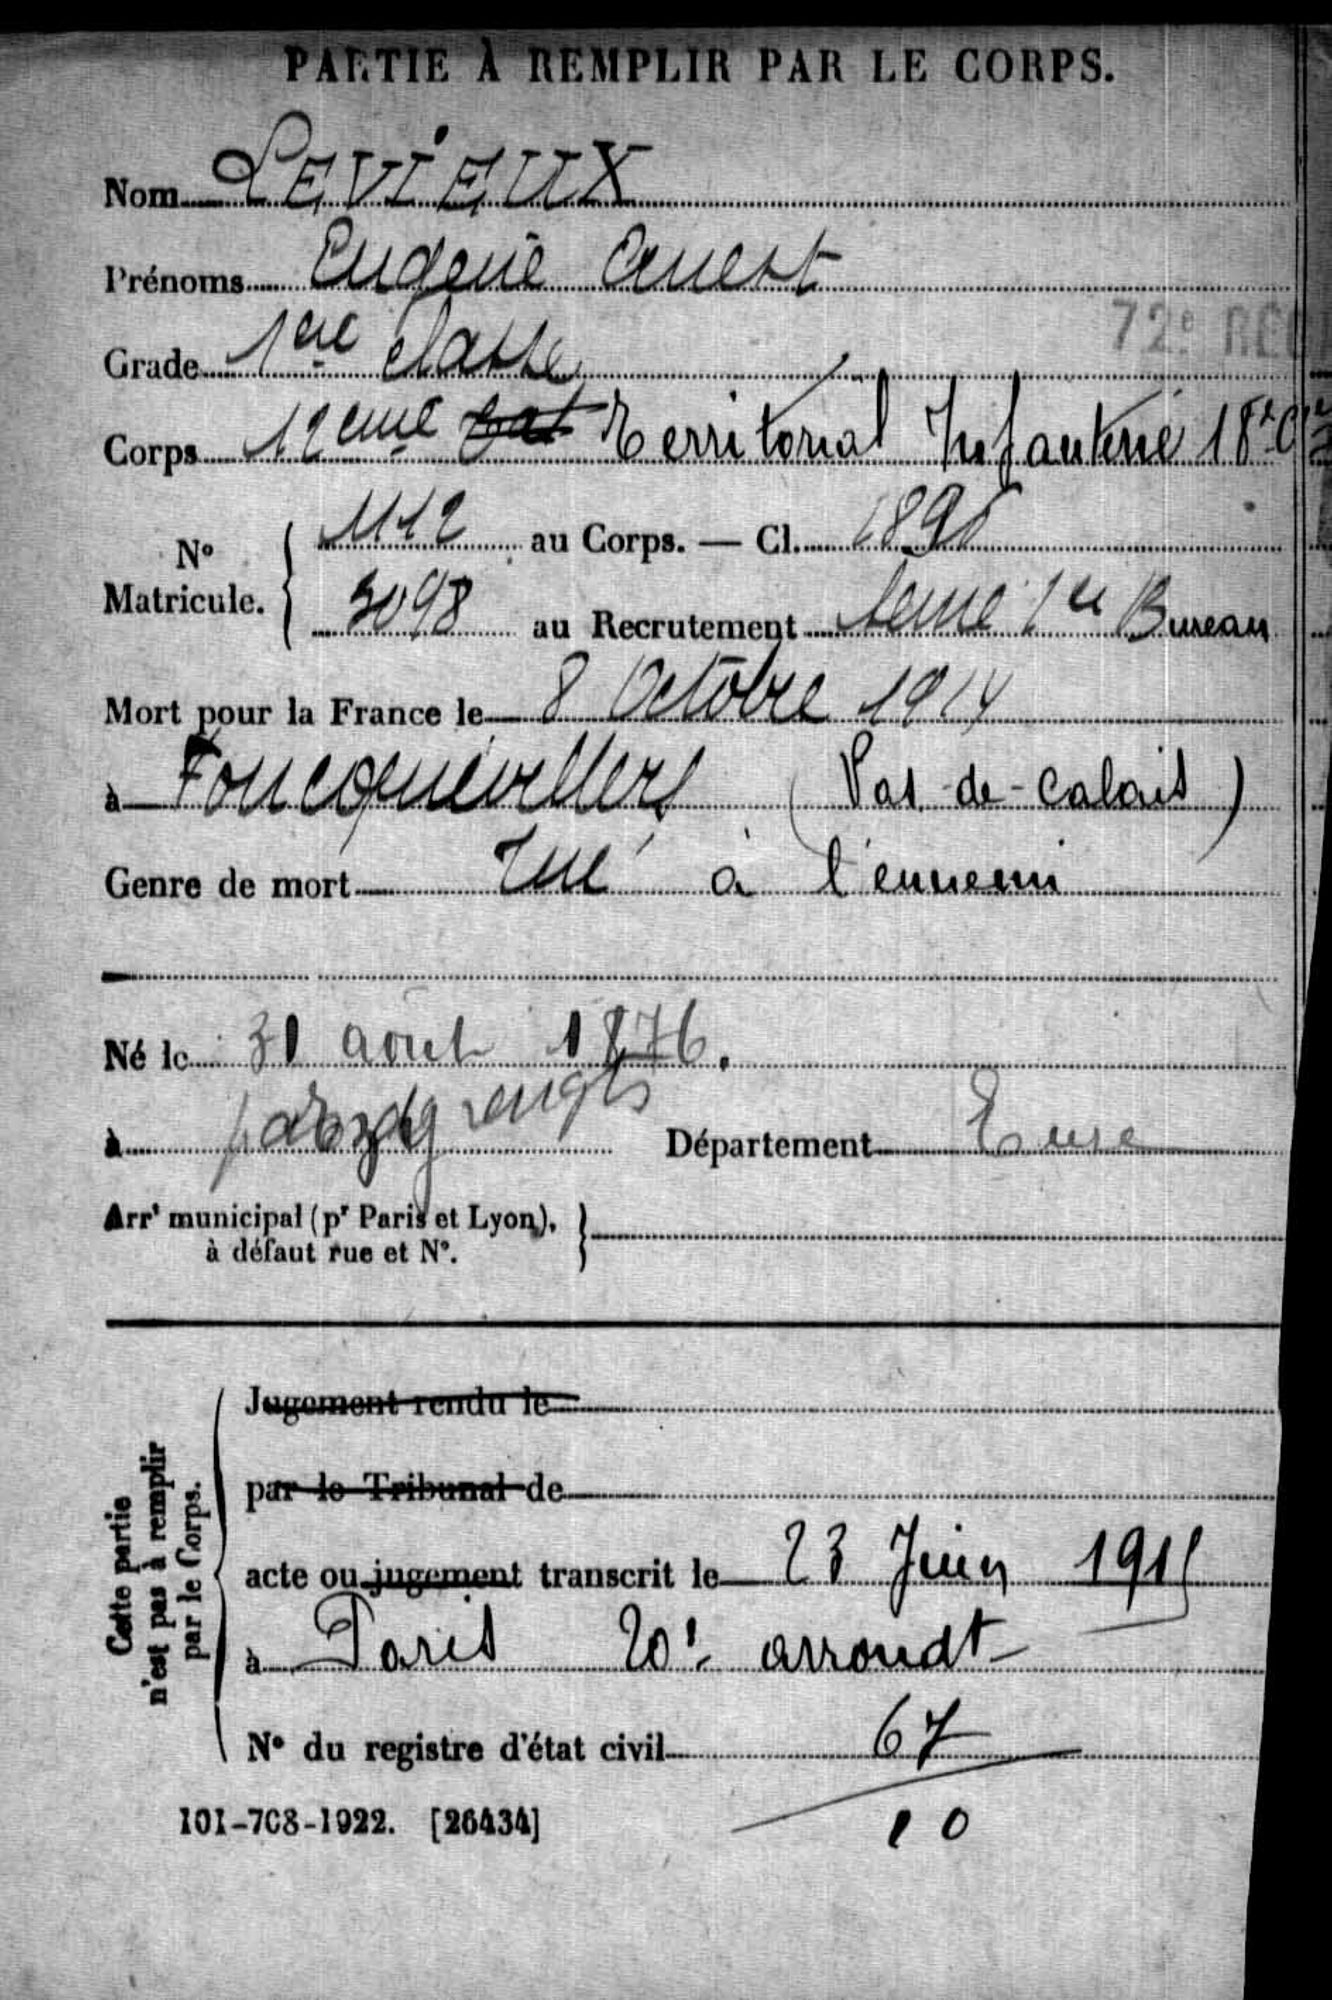 PARTIE À REMPLIR PAR LE CORPS.
Nom LEVIEUX
Prénoms Eugène Ernest
72e RÉG
Grade 1ere classe
Corps 12eme Bat Territorial Infanterie 18e Cie
N° Matricule. { 1112 au Corps. — Cl. 1896
3098 au Recrutement Seine 1er Bureau
Mort pour la France le 8 Octobre 1914
à Foncquevillers (Pas-de-Calais)
Genre de mort Tué à l'ennemi
Né le 31 août 1876.
à Département Eure
Arrt municipal (pr Paris et Lyon), à défaut rue et N°. }
Cette partie n'est pas à remplir par le Corps.
Jugement rendu le
par le Tribunal de
acte ou jugement transcrit le 23 Juin 1915
à Paris 20e arrondt
N° du registre d'état civil 67
101-708-1922. [26434]
10